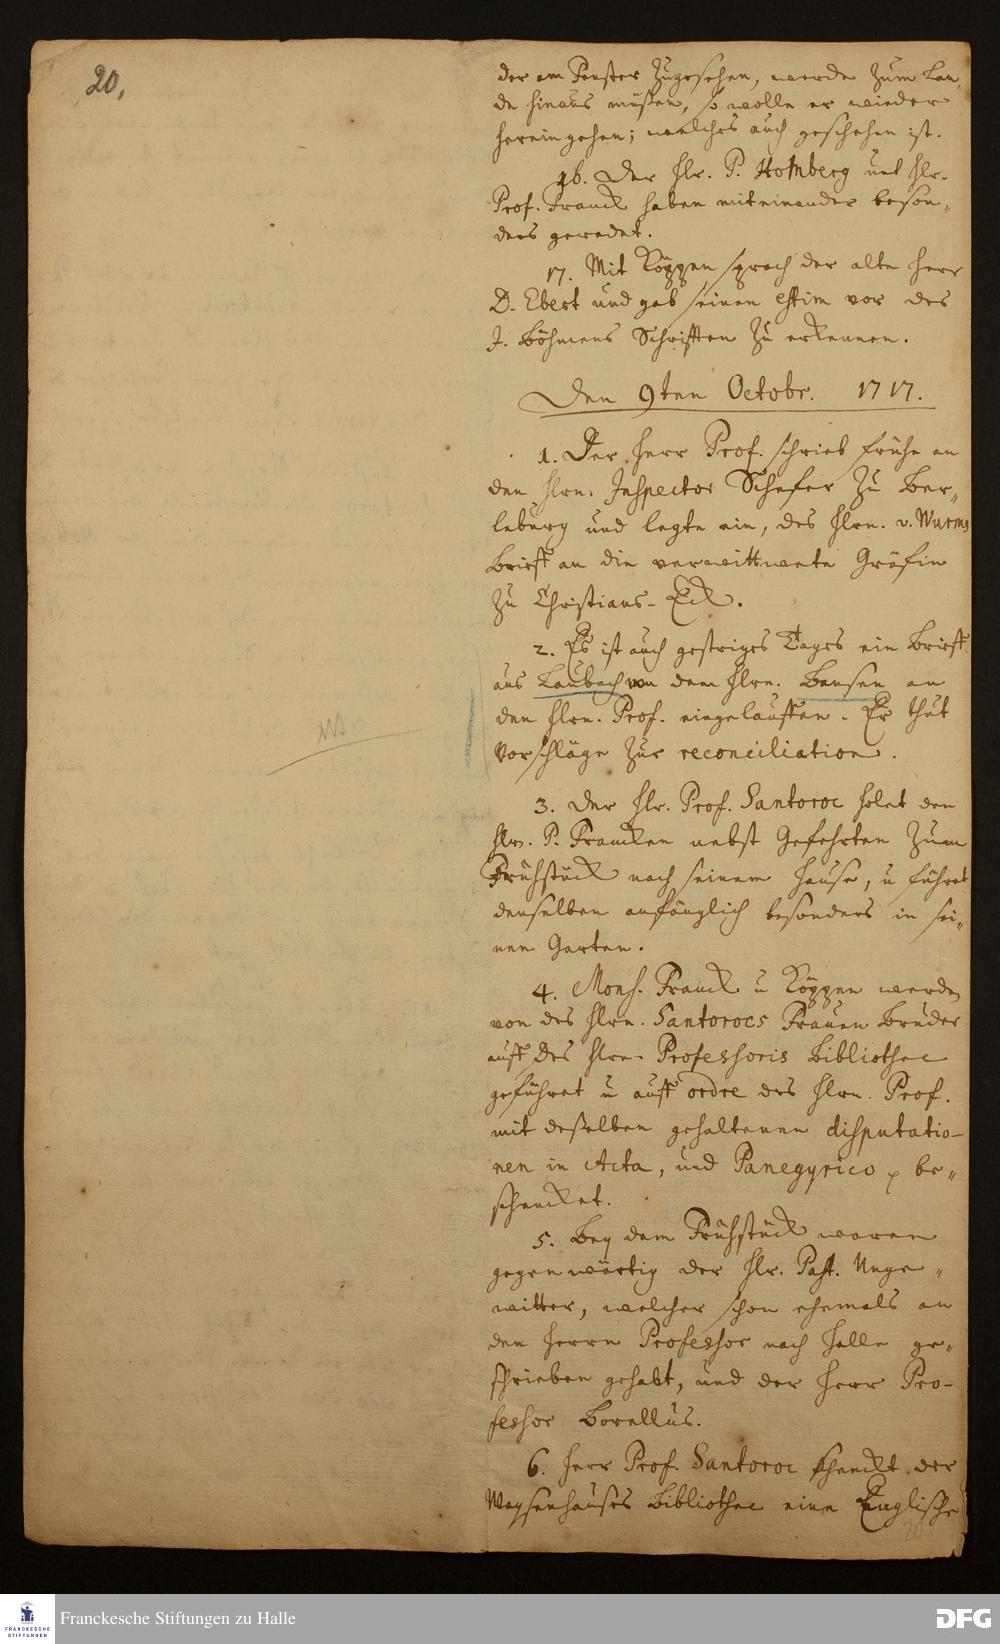 20.
der am Fenster zugesehen, werde zum Lan„
de hinaus müßen, so wolle er wieder
hereingehen; welches auch geschehen ist.
16. Der Hr. P. Homberg und Hr.
Prof. Franck haben miteinander beson„
ders geredet.
17. Mit Köppen sprach der alte Herr
D. Ebert und gab seinen estim vor des
J. Böhmens Schrifften zu erkennen.
Den 9ten Octobr. 1717.
1. Der Herr Prof. schrieb frühe an
den Hrn. Inspector Schefer zu Ber„
leburg und legte ein, des Hrn. v. Wurms
Brieff an die verwittwete Gräfin
zu Christians-Eck.
2. Es ist auch gestriges Tages ein Brieff
aus Laubach von dem Hrn. Bensen an
den Hrn. Prof. eingelauffen. Er thut
Vorschläge zur reconciliation.
3. Der Hr. Prof. Santoroc holet den
Hrn. P. Francken nebst Gefehrten zum
Frühstück nach seinem Hause, u führet
denselben anfänglich besonders in sei„
nen Garten.
4. Mons. Franck u Köppen werden
von des Hrn. Santorocs Frauen Bruder
auff des Hrn. Professoris Bibliothec
geführet u auff ordre des Hrn. Prof.
mit deßelben gehaltenen disputatio-
nen in Acta, und Panegyrico p be„
schencket.
5. Bey dem Frühstück waren
gegenwärtig der Hr. Past. Unge„
witter, welcher schon ehemals an
den Herrn Professor nach Halle ge„
schrieben gehabt, und der Herr Pro-
fessor Borellus.
6. Herr Prof. Santoroc schenckt der
Waysenhauses Bibliothec eine Englische
20
FRANCKESCHE
STIFTUNGEN
Franckesche Stiftungen zu Halle
DFG